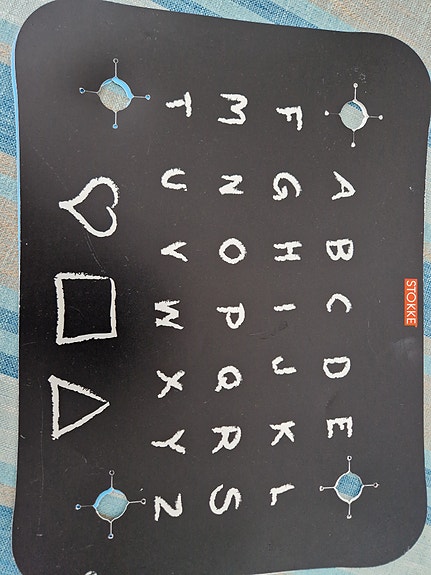 STOKKE
A B C D E
F G H I J K L
M N O P Q R S
T U V W X Y Z